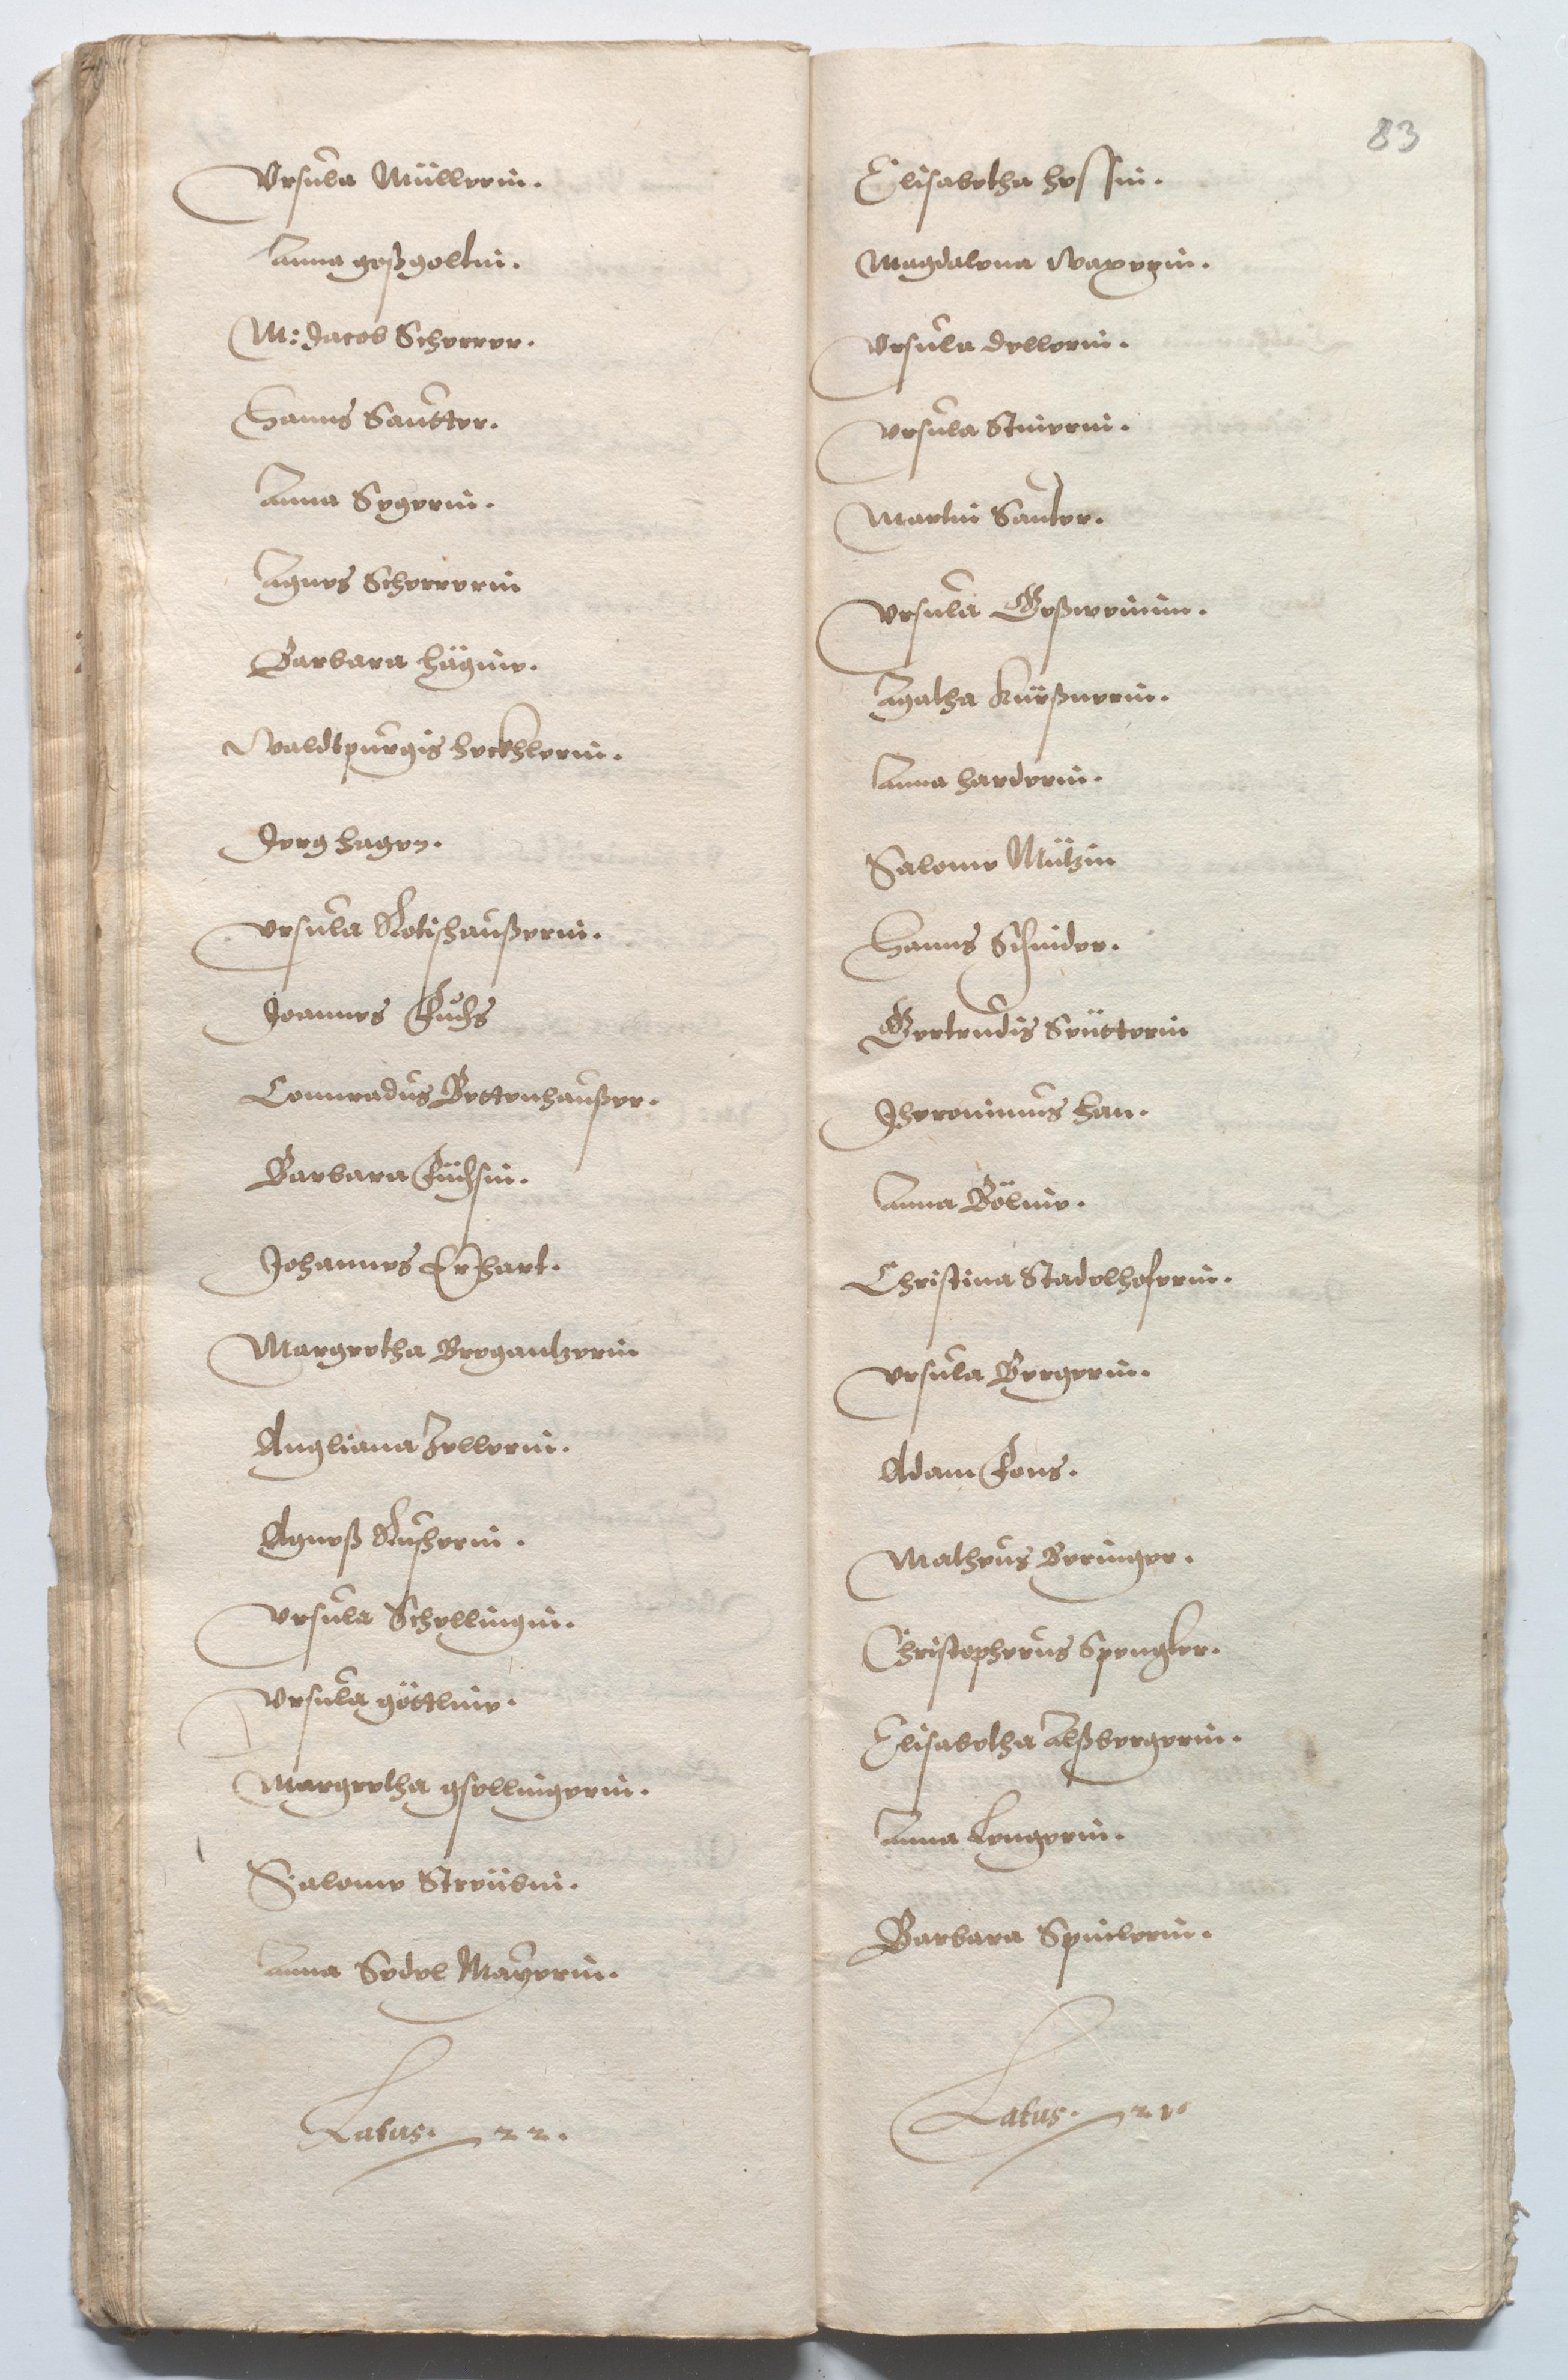 Vrsula Müllerin.
Anna goßgoltin.
M: Jacob Scherrer.
Hanns Sautter.
Anna Segerin.
Agnes Scherrerin
Barbara hägine.
Waldtpurgis heckhlerin.
Jerg hagen.
Vrsula Rotishaußerin.
Joannes Fuchs
Connradus Bettenhaußer.
Barbara Füchsin.
Johannes Erhart.
Margretha Bregantzerin
Angliana Zellerin.
Agneß Rüsherin.
Vrsula Schellingin.
Vrsula göttline.
Margretha gsellingerin.
Salome Streübin.
Anna Sedel Mayerin.
Latus. 22.
83
Elisabetha hessin.
Magdalena Waxerin.
Vrsula dellerin.
Vrsula Steinerin.
Martin Sauter.
Vrsula Geßweinin.
Agatha Kürßnerin.
Anna harderin.
Salome Mützin
Hanns Schnider.
Gertrudis Seütterin
Jheronimus han.
Anna Böline.
Christina Stadelhoferin.
Vrsula Bergerin.
Adam Fons.
Matheus Beringer.
Christopherus Spengler.
Elisabetha Alßbergerin.
Anna Lengerin.
Barbara Spinlerin.
Latus. 21